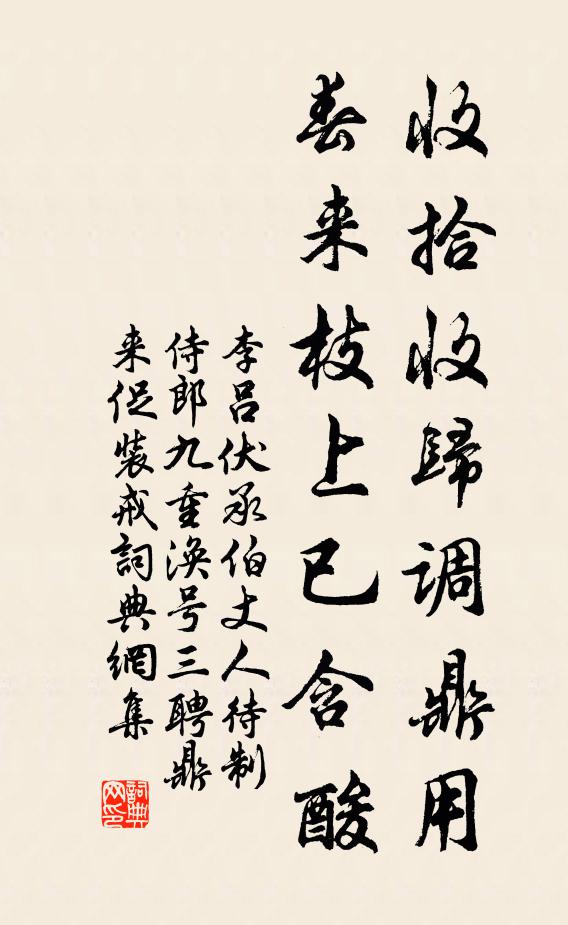 收拾收歸调鼎用
春来枝上已含酸
李吕伏承伯丈人待制
侍郎九重涣号三聘鼎
来促裝戒詞典網集
詞典网印